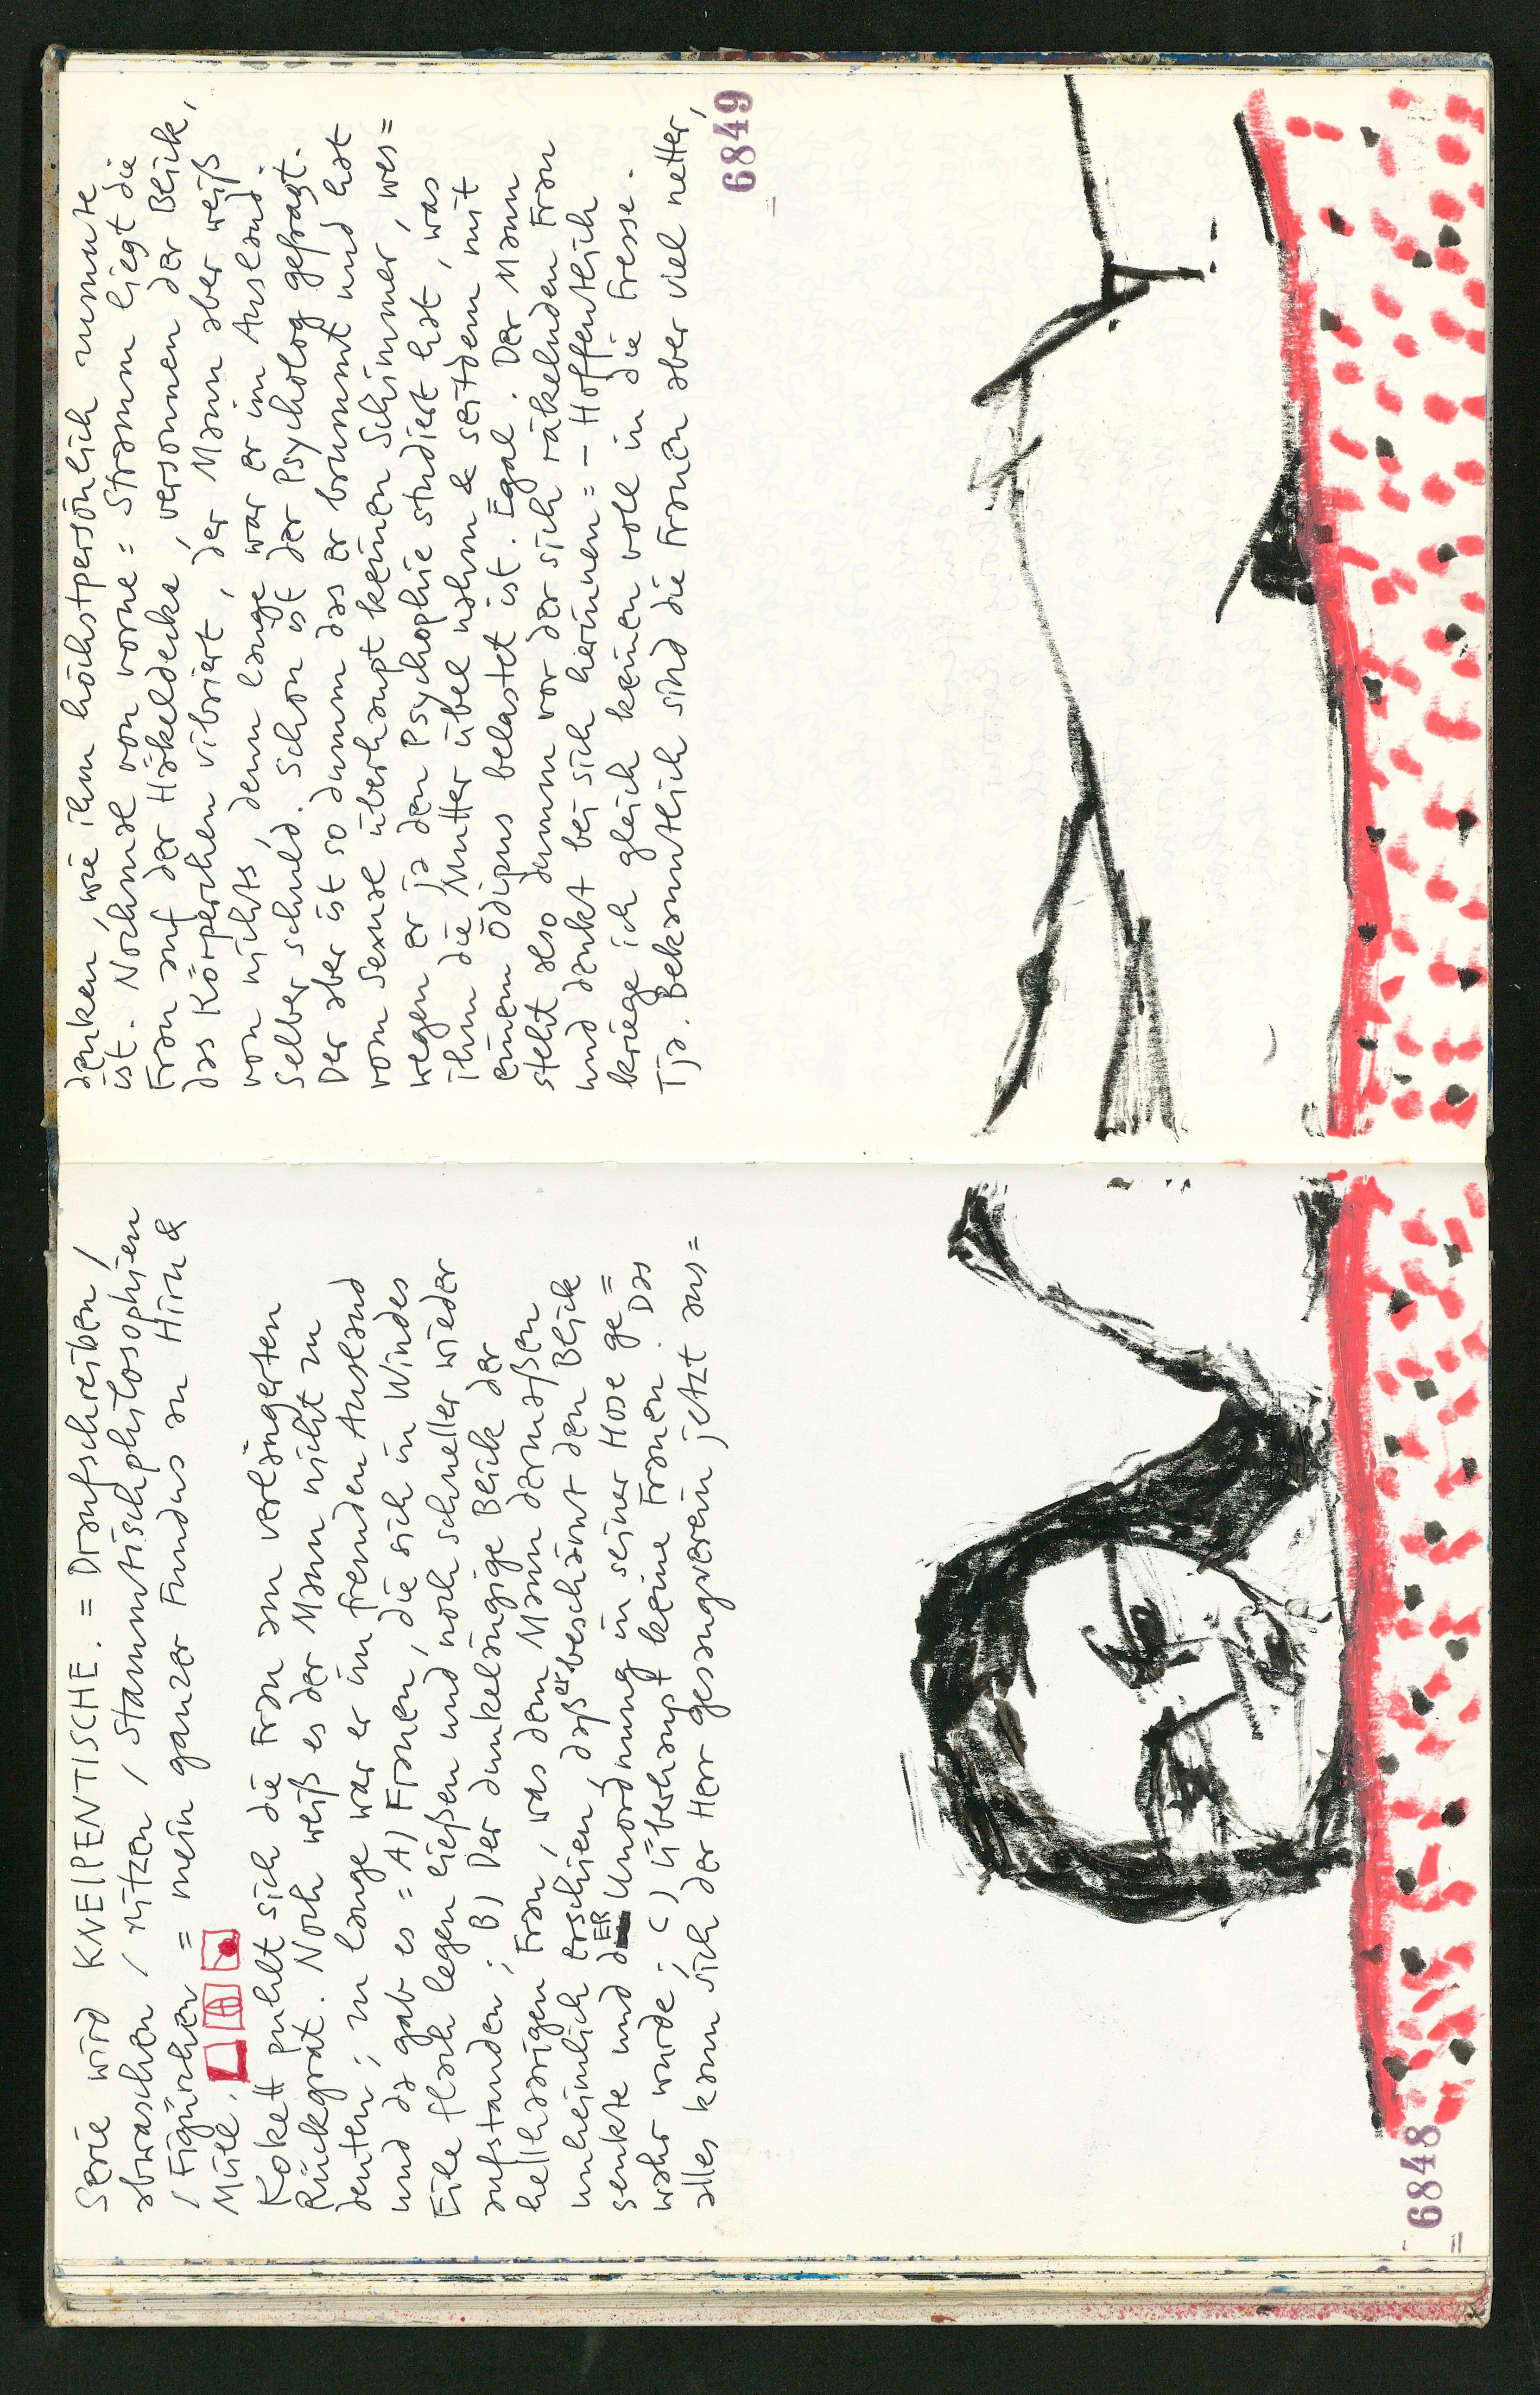 Serie wird KNEIPENTISCHE. = Draufschreiben /
abwaschen / ritzen / Stammtischphilosophien
/ Figürchen = mein ganzer Fundus an Hirn &
Müll.
Kokett puhlt sich die Frau am verlängerten
Rückgrat. Noch weiß es der Mann nicht zu
deuten; zu lange war er im fremden Ausland
und da gab es = A) Frauen, die sich in Windes
Eile flach legen ließen und noch schneller wieder
aufstanden; B) Der dunkeläugige Blick der
hellhaarigen Frau, was dem Mann dermaßen
unheimlich erschien, daß er beschämt den Blick
senkte und dER Unordnung in seiner Hose ge=
wahr wurde; C) Überhaupt keine Frauen. Das
alles kann sich der Herr Gesangsverein jetzt aus=
6848
denken, wie ihm höchstpersönlich zumute
ist. Nochmal von vorne = Stramm liegt die
Frau auf der Häkeldecke, versonnen der Blick,
das Körperchen vibriert, der Mann aber weiß
von nichts, denn lange war er im Ausland.
Selber schuld. Schon ist der Psycholog gefragt.
Der aber ist so dumm das er brummt und hat
vom Sexual überhaupt keinen Schimmer, wes=
wegen er ja den Psychophie studiert hat, was
ihm die Mutter übel nahm & seitdem mit
einem Ödipus belastet ist. Egal. Der Mann
steht also dumm vor der sich räkelnden Frau
und denkt bei sich herinnen = – Hoffentlich
kriege ich gleich keinen voll in die Fresse.
Tja. Bekanntlich sind die Frauen aber viel netter,
6849